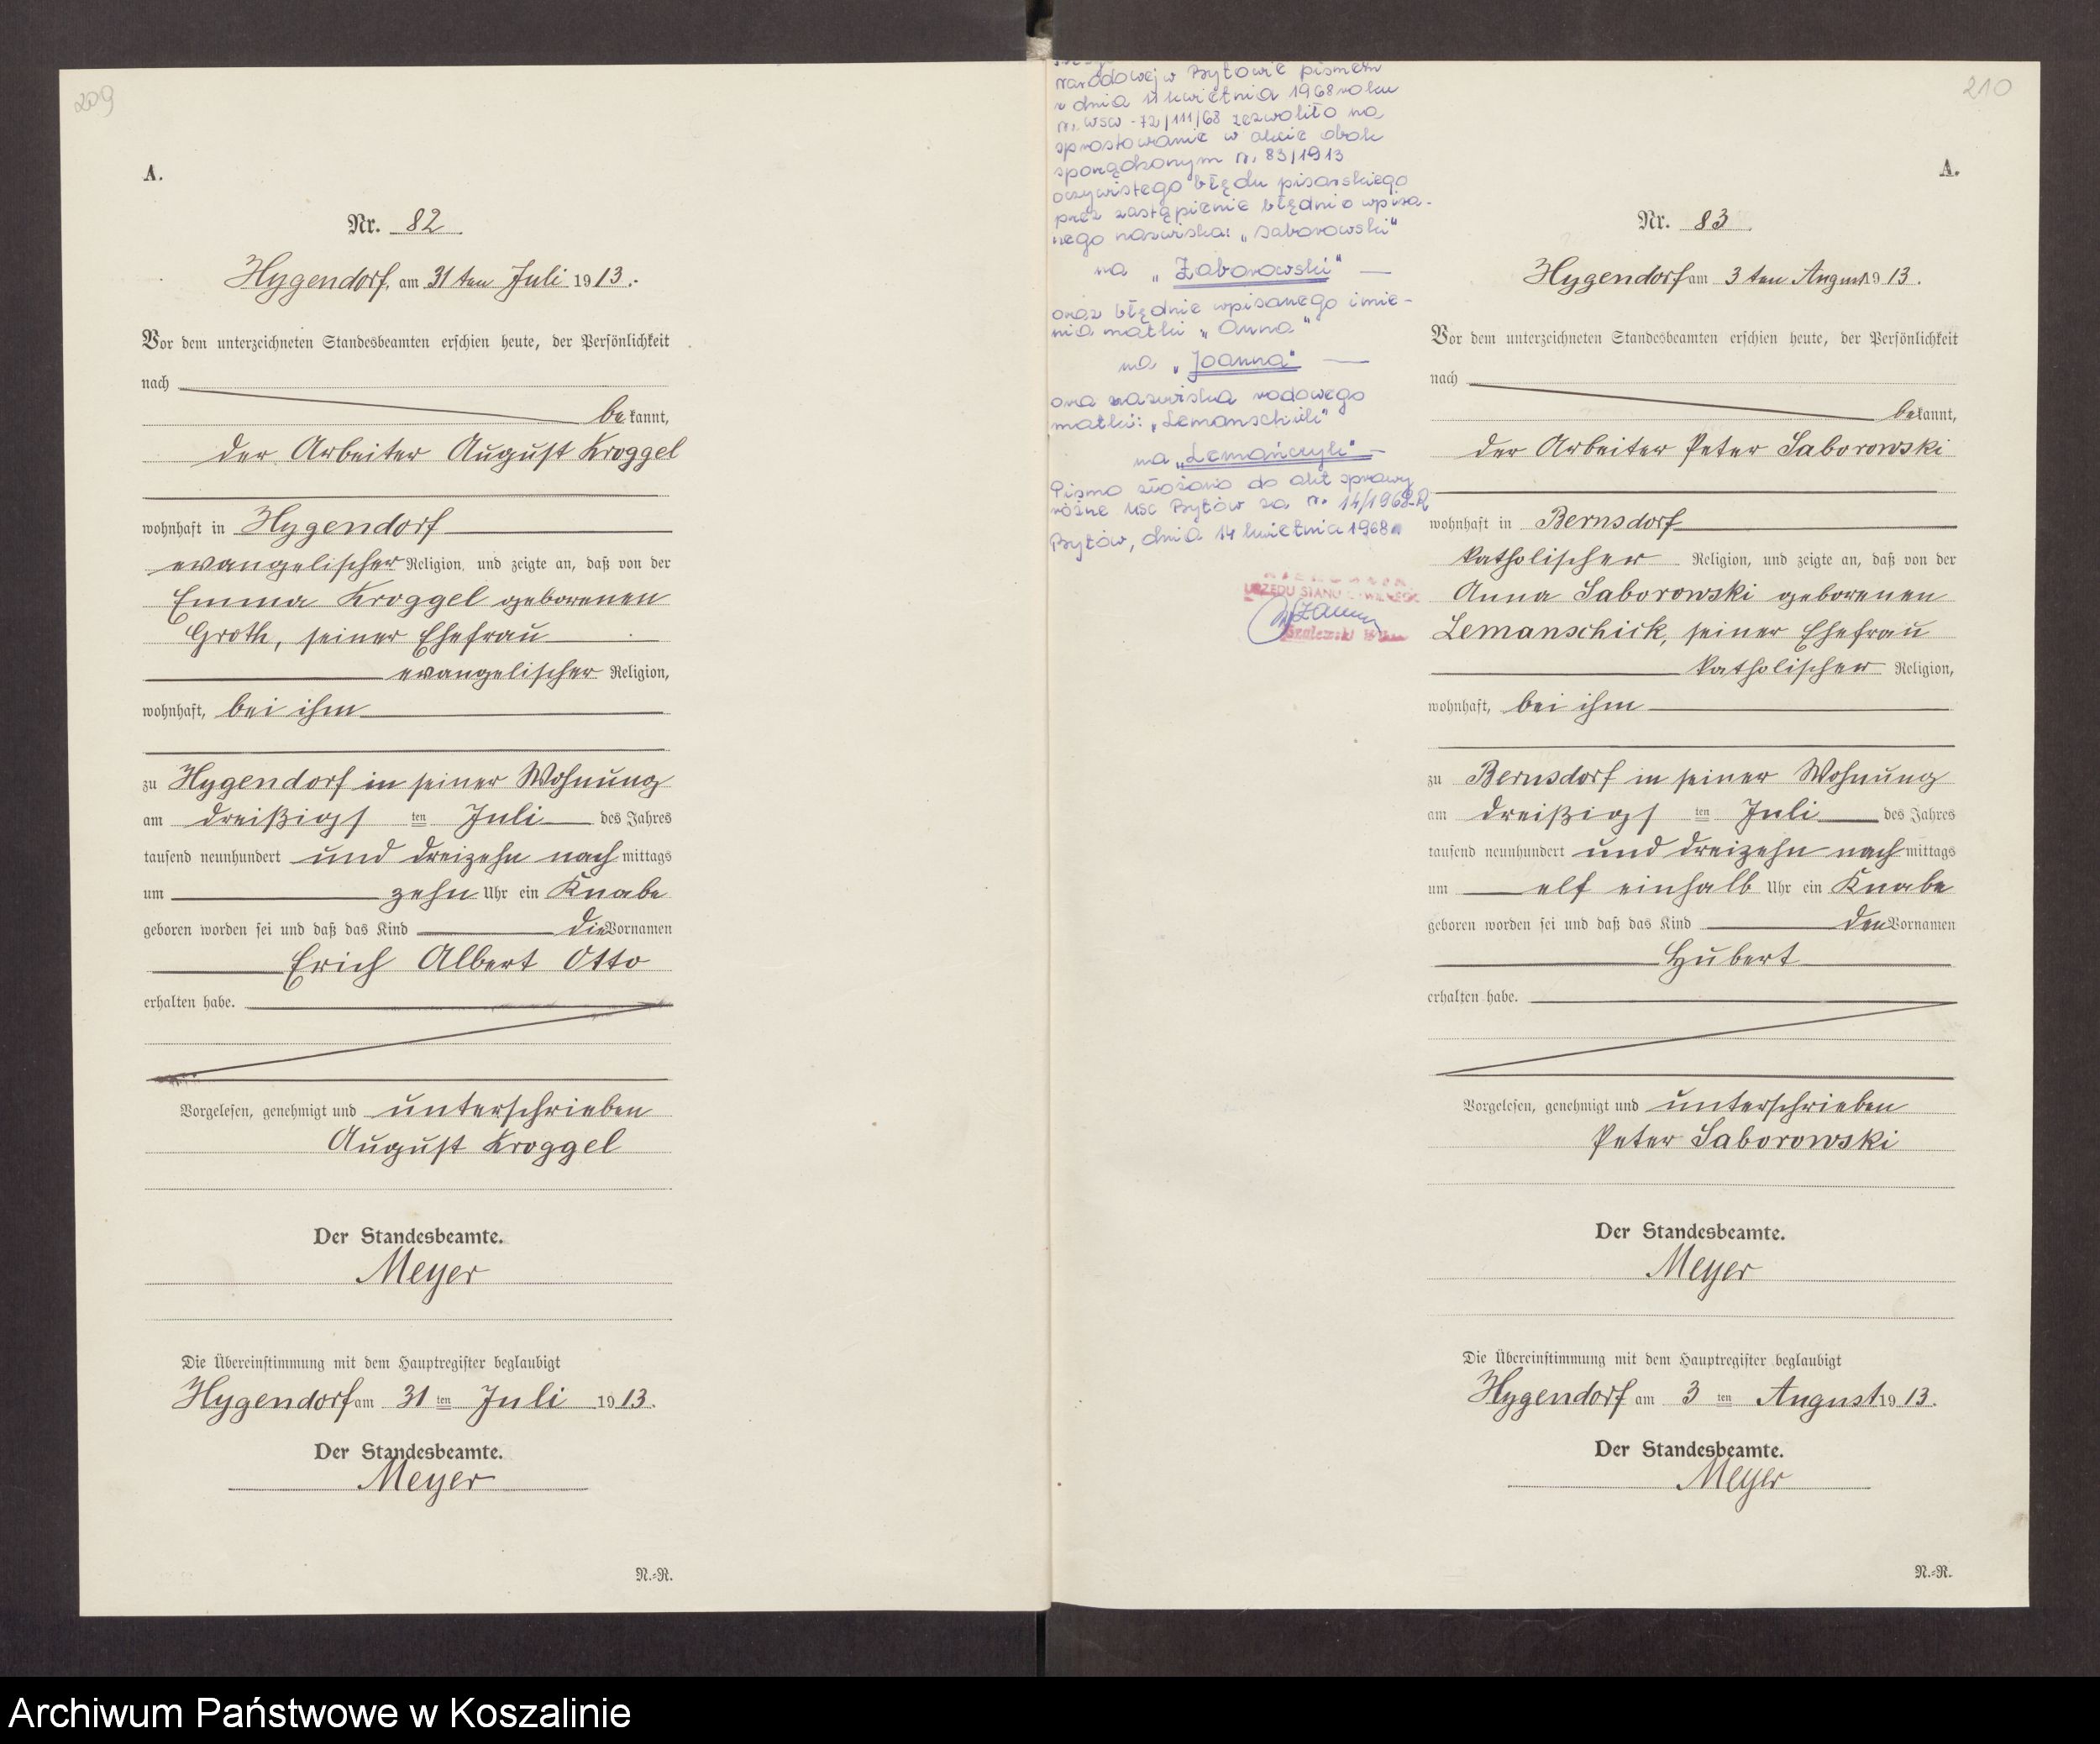 209
A.
Nr. 82
Hygendorf, am 31 ten Juli 1913.
Vor dem unterzeichneten Standesbeamten erschien heute, der Persönlichkeit
nach
bekannt,
der Arbeiter August Kroggel
wohnhaft in Hygendorf
evangelischer Religion, und zeigte an, daß von der
Emma Kroggel geborenen
Groth, seiner Ehefrau
evangelischer Religion,
wohnhaft, bei ihm
zu Hygendorf in seiner Wohnung
am dreißigs ten Juli des Jahres
tausend neunhundert und dreizehn nach mittags
um zehn Uhr ein Knabe
geboren worden sei und daß das Kind die Vornamen
Erich Albert Otto
erhalten habe.
Vorgelesen, genehmigt und unterschrieben
August Kroggel
Der Standesbeamte.
Meyer
Die Übereinstimmung mit dem Hauptregister beglaubigt
Hygendorf am 31 ten Juli 1913.
Der Standesbeamte.
Meyer
N.-R.
narodowej w Bytowie pismem
z dnia 11 kwietnia 1968 roku
nr. WSW-72/111/68 zezwoliło na
sprostowanie w akcie obok
sporządzonym nr. 83/1913
oczywistego błędu pisarskiego
przez zastąpienie błędnie wpisa-
nego nazwiska: „Saborowski"
na „Zaborowski"
oraz błędnie wpisanego imie-
nia matki „Anna"
na „Joanna"
ora nazwiska rodowego
matki: „Lemanschick"
na „Lemańczyk"
Pismo złożono do akt sprawy
różne USC Bytów za nr. 14/1968 R
Bytów, dnia 14 kwietnia 1968
URZĘDU STANU CYWILNEGO
210
A.
Nr. 83
Hygendorf am 3 ten August 1913.
Vor dem unterzeichneten Standesbeamten erschien heute, der Persönlichkeit
nach
bekannt,
der Arbeiter Peter Saborowski
wohnhaft in Bernsdorf
katholischer Religion, und zeigte an, daß von der
Anna Saborowski geborenen
Lemanschick, seiner Ehefrau
katholischer Religion,
wohnhaft, bei ihm
zu Bernsdorf in seiner Wohnung
am dreißigs ten Juli des Jahres
tausend neunhundert und dreizehn nach mittags
um elf einhalb Uhr ein Knabe
geboren worden sei und daß das Kind den Vornamen
Hubert
erhalten habe.
Vorgelesen, genehmigt und unterschrieben
Peter Saborowski
Der Standesbeamte.
Meyer
Die Übereinstimmung mit dem Hauptregister beglaubigt
Hygendorf am 3 ten August 1913.
Der Standesbeamte.
Meyer
N.-R.
Archiwum Państwowe w Koszalinie